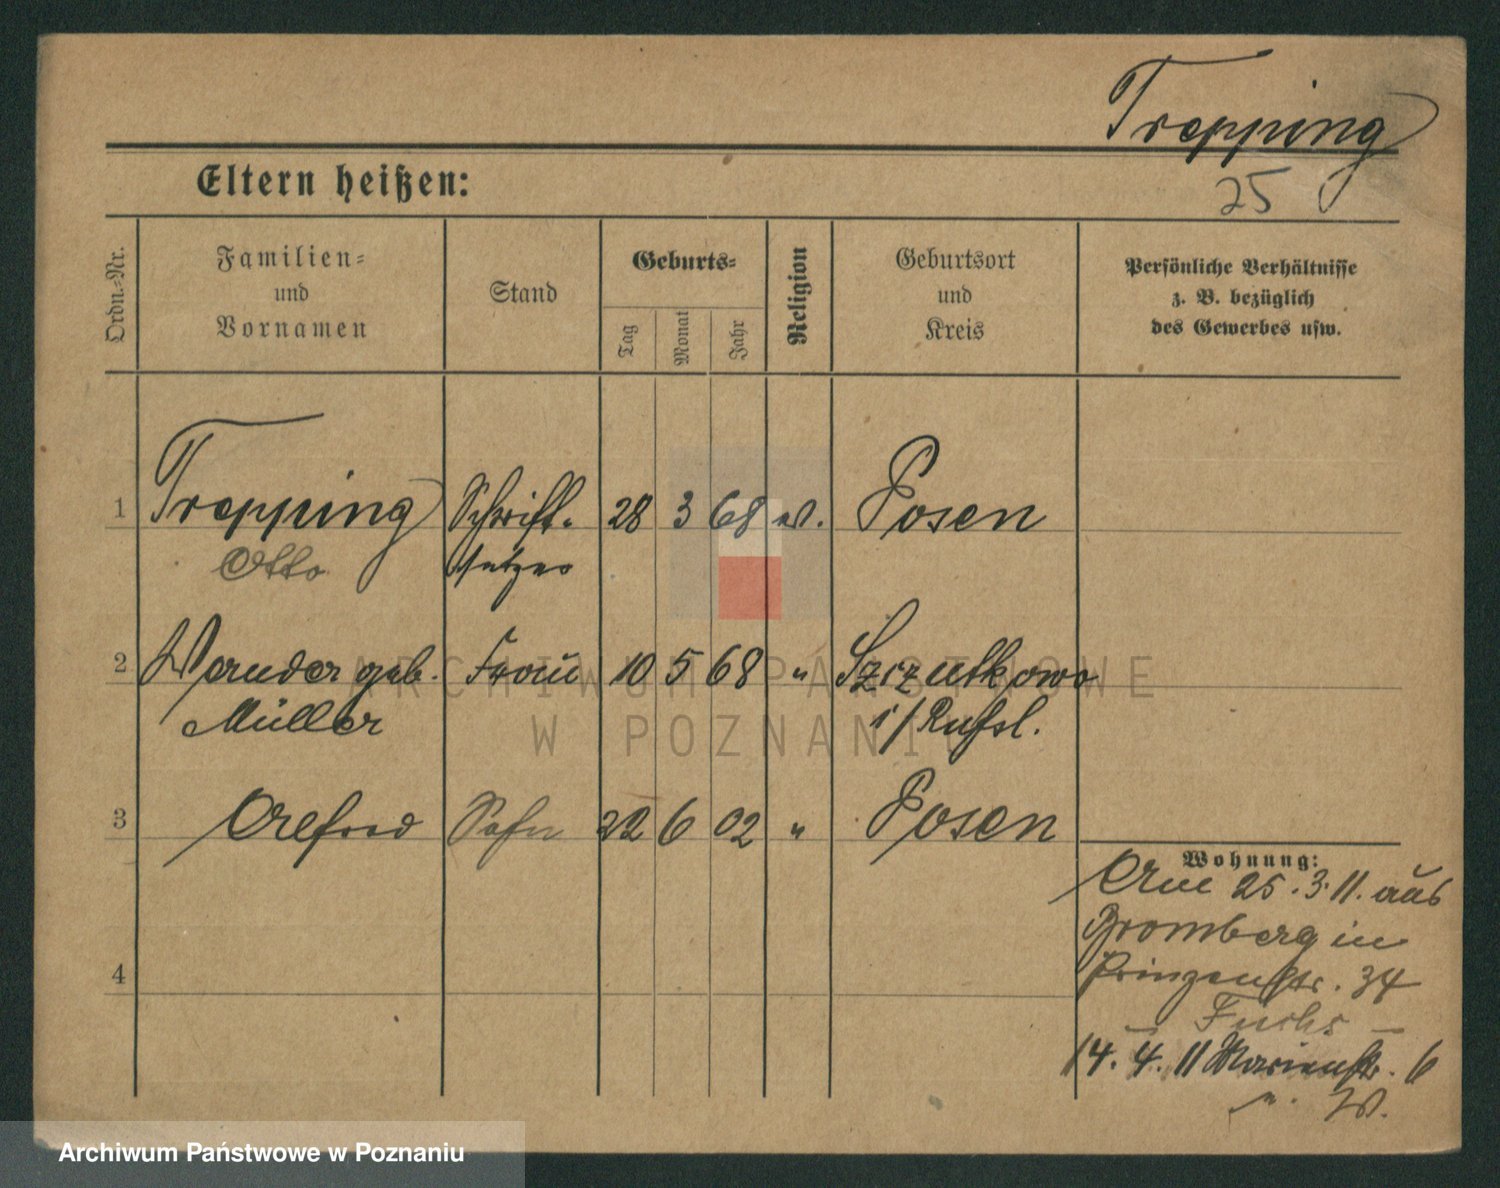 Trepping
25
Eltern heißen:
Ordn.-Nr.
Familien-
und
Vornamen
Stand
Geburts-
Tag
Monat
Jahr
Religion
Geburtsort
und
Kreis
Persönliche Verhältnisse
z. B. bezüglich
des Gewerbes usw.
1 Trepping Schrift- 28 3 68 ev. Posen
Otto setzer
2 geb. Frau 10 5 68 " Szczutkowo
Müller i/Rußl.
3 Alfred Sohn 22 6 02 " Posen
Wohnung:
Am 25.3.11. aus
Bromberg in
Prinzenstr. 34
– Fuchs –
4
14.4.11 Marienstr. 6
W.
ARCHIWUM PAŃSTWOWE
W POZNANIU
Archiwum Państwowe w Poznaniu